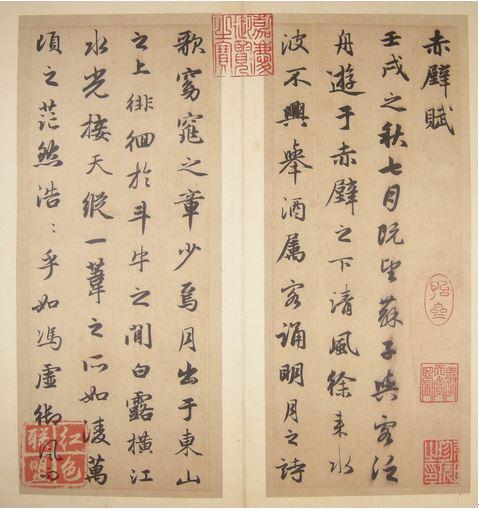 赤壁賦
壬戌之秋七月既望蘇子與客泛
舟遊于赤壁之下清風徐來水
波不興舉酒属客誦明月之詩
歌窈窕之章少焉月出于東山
之上徘徊於斗牛之間白露橫江
水光接天縱一葦之所如淩萬
頃之茫然浩〻乎如馮虛御風而
嘉慶御覽之寶
红色
联盟